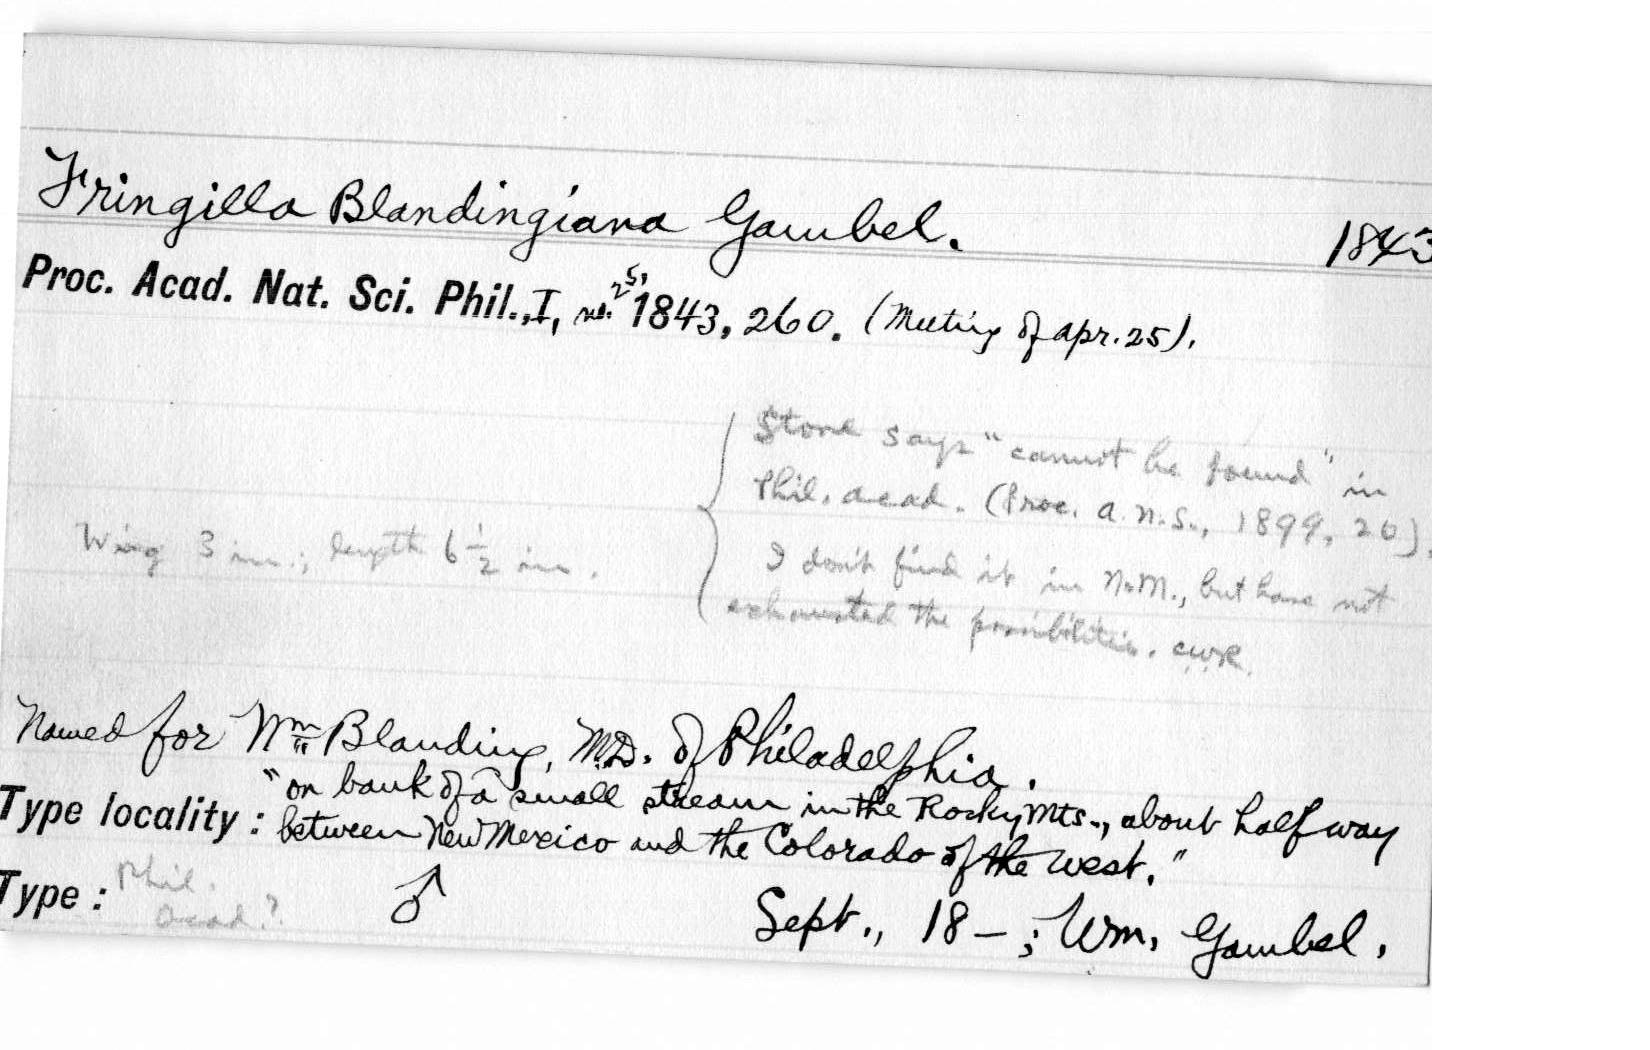 Fringilla Blandingiana Gambel. 1843
Proc. Acad. Nat. Sci. Phil., I, no. 25, 1843, 260. (Meeting of Apr. 25).
Stone says "cannot be found" in
Phil. Acad. (Proc. A.N.S., 1899, 20).
Wing 3 in.; length 6 1/2 in.
I don't find it in N.M., but have not
exhausted the possibilities. CWR.
Named for Wm Blanding, M.D. of Philadelphia.
Type locality: "on bank of a small stream in the Rocky Mts., about half way
between New Mexico and the Colorado of the west."
Type: Phil. Acad.? ♂ Sept., 18–; Wm. Gambel.